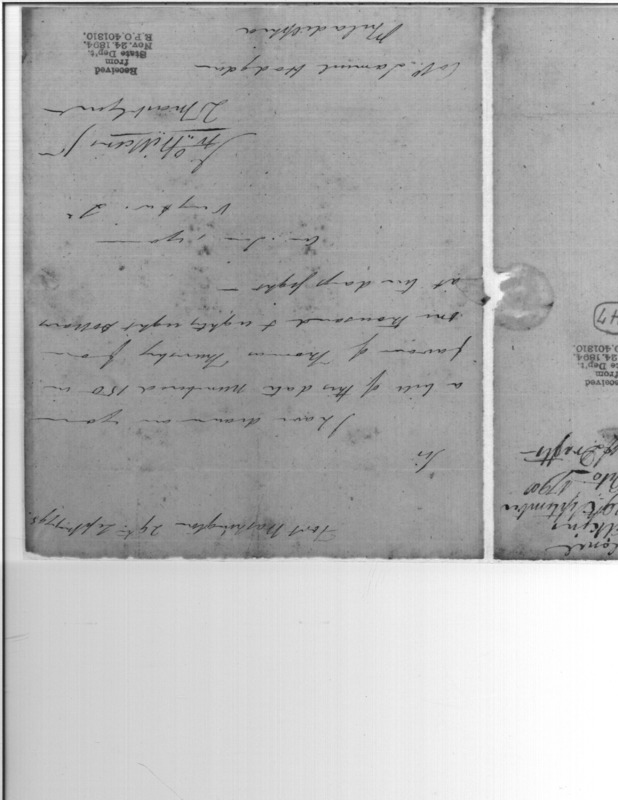 Fort Washington 29th Septr 1795
Sir
I have drawn on you
a bill of this date numbered 150 in
favour of Thomas Thursby for
one thousand & eighty eight Dollars
at ten days sight —
I am, Sir, your
Qr Mr Genl
Col. Samuel Hodgdon
Philadelphia
Received
from
State Dep't.
Nov. 24, 1894.
R.P.O. 401810.
47
Received
from
State Dep't.
24, 1894
O. 401810.
September
Ditto 1790
of Drafts